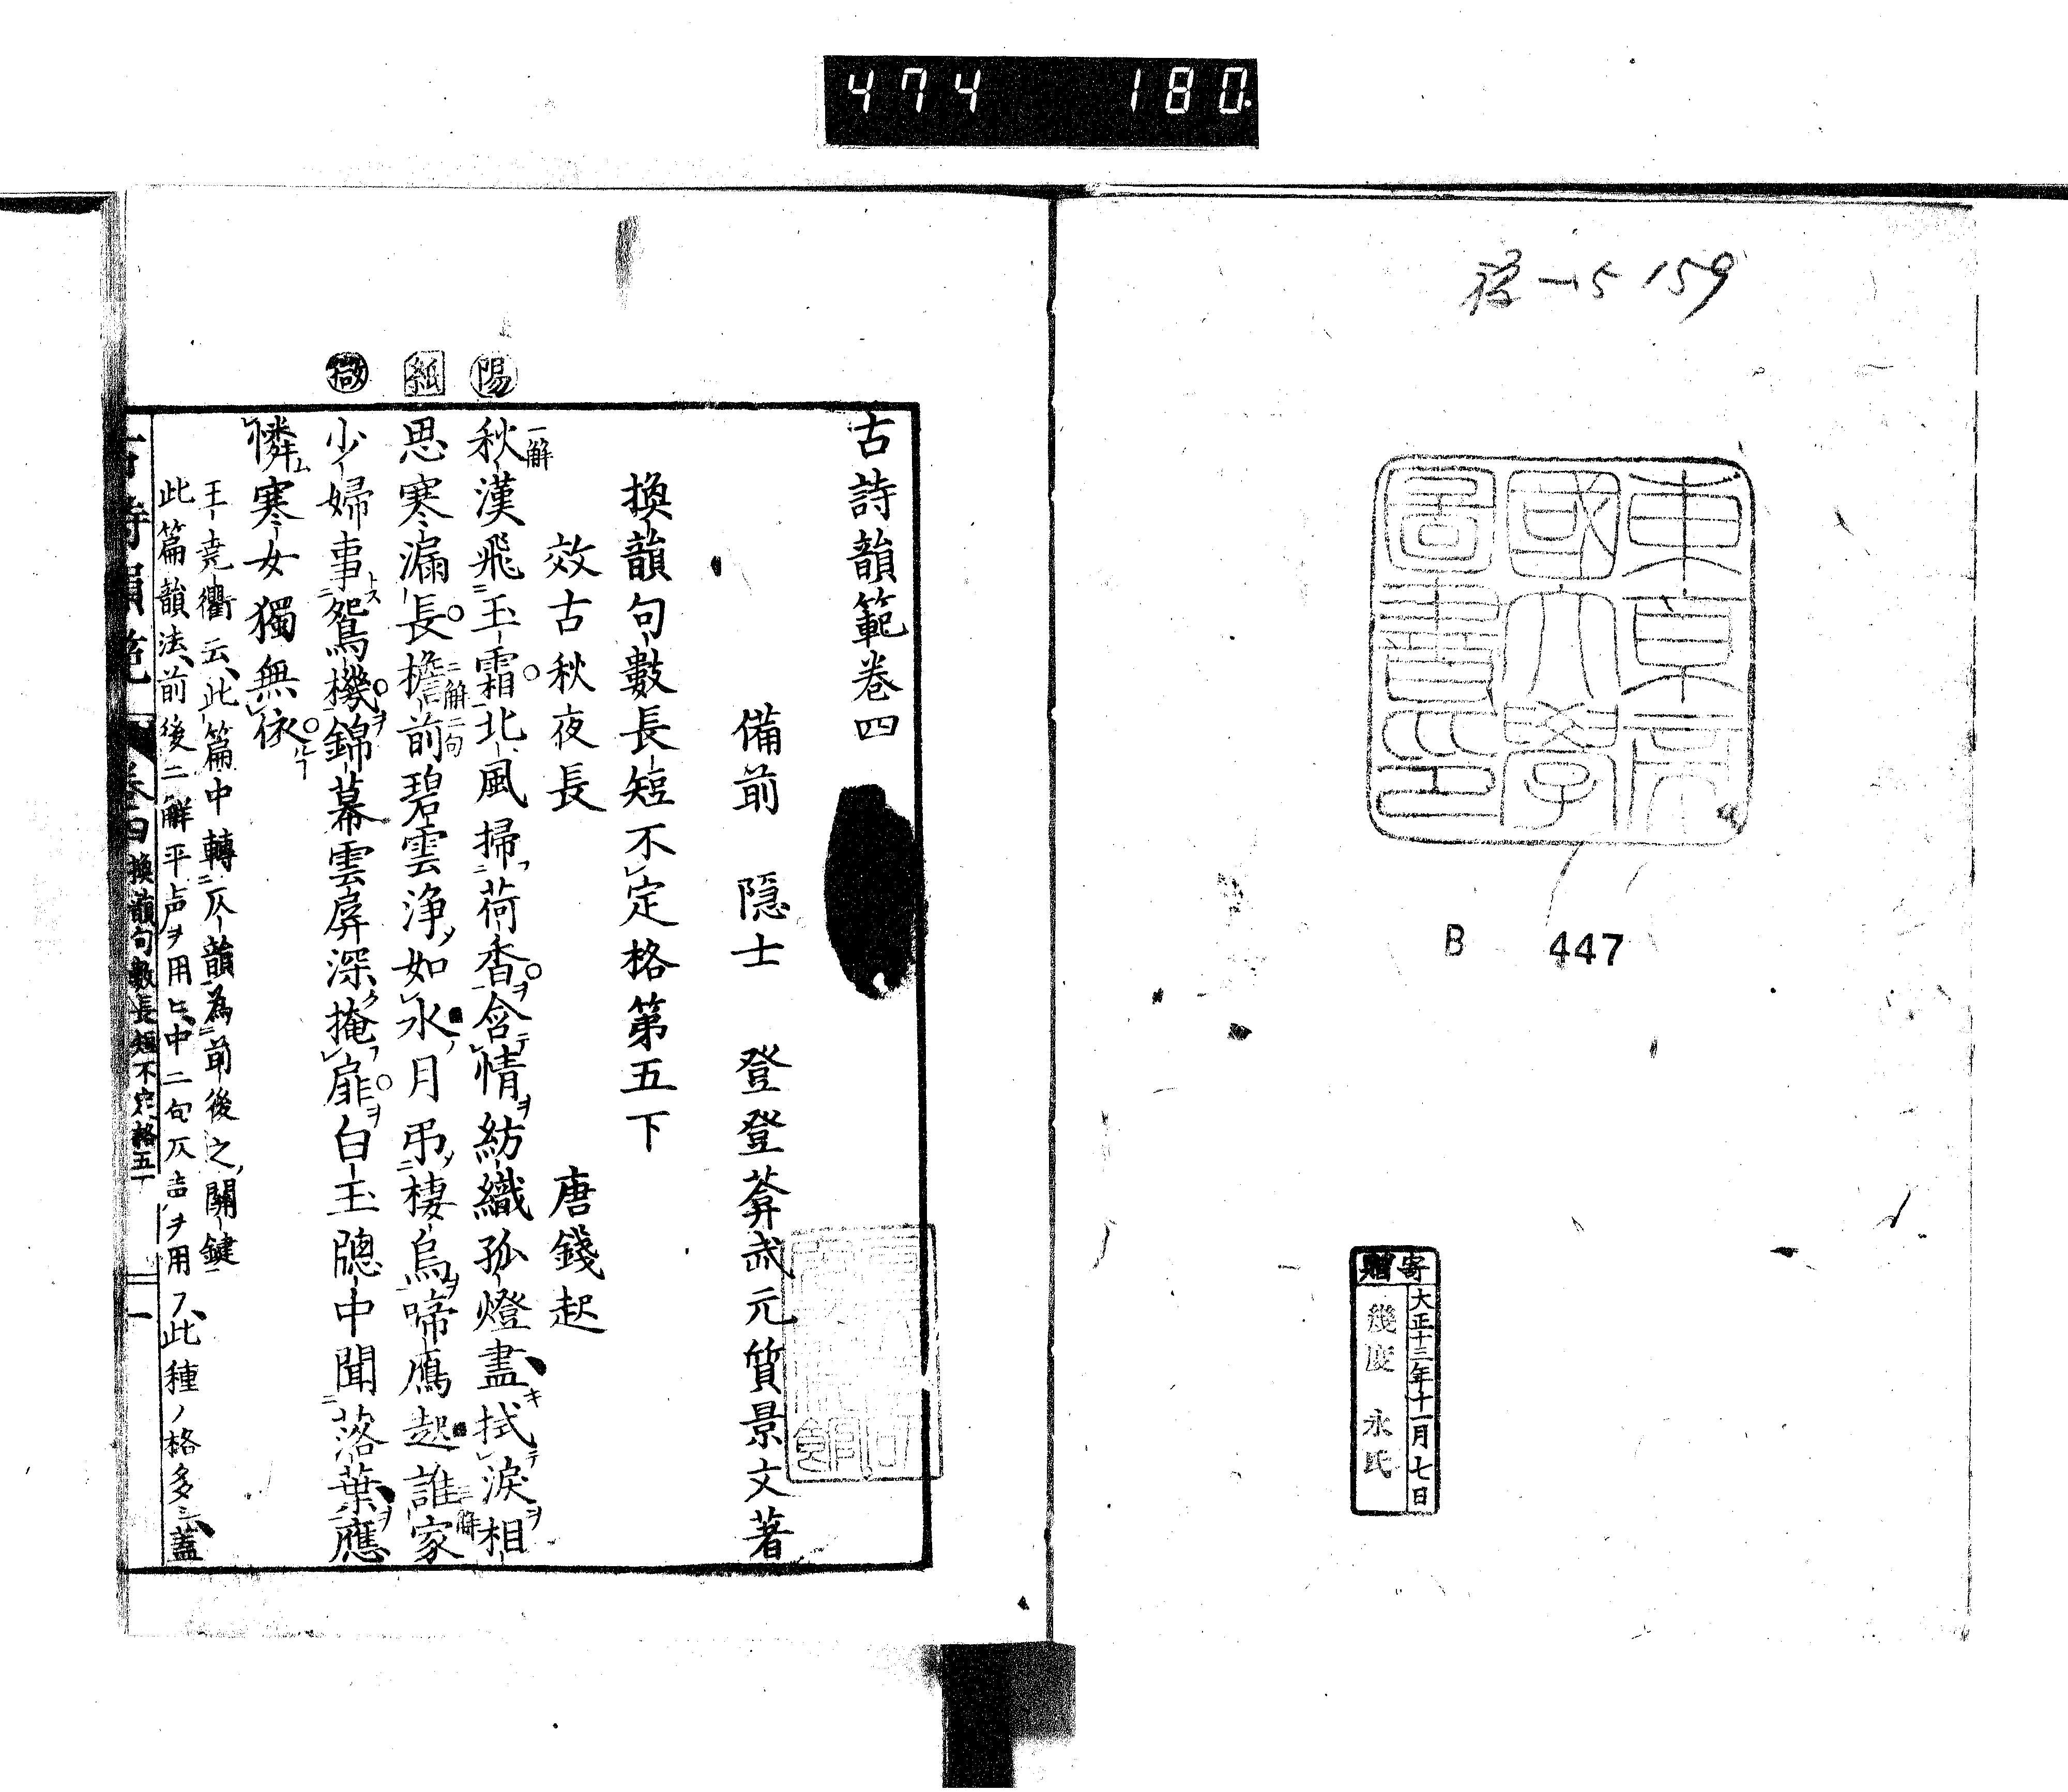 474 180.
159
東京帝
國大學
圖書印
B 447
寄贈
大正十三年十一月七日
幾度 永氏
古詩韻範卷四
備前 隠士 登登葊武元質景文著
換韻句數長短不定格第五下
效古秋夜長 唐錢起
陽
一解
秋漢飛玉霜北風掃荷香含情紡織孤燈盡拭淚相
紙
思寒漏長檐前碧雲浄如水月弔棲烏啼鴈起誰家
二解二句
三解
微
少婦事鴛機錦幕雲屏深掩扉白玉牕中聞落葉應
憐寒女獨無依
王堯衢云此篇中轉仄韻為前後之關鍵
此篇韻法前後二解平声ヲ用ヒ中二句仄声ヲ用フ此種ノ格多シ蓋
古詩韻範 卷四 換韻句數長短不定格五下 一